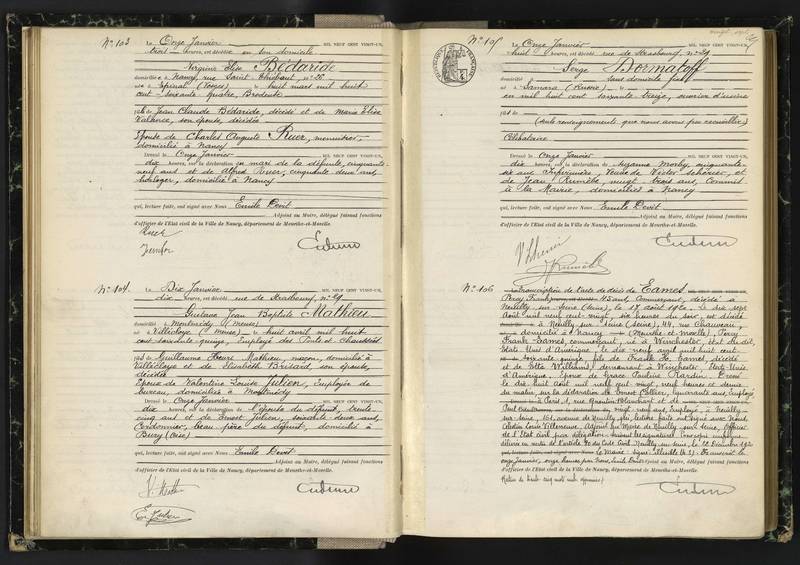 N° 103
Le Onze Janvier MIL NEUF CENT VINGT-UN,
trois heures, est décédée en son domicile
Virginie Elise Bédaride
domiciliée à Nancy, rue Saint Thiébaut, n° 26
née à Epinal (Vosges) le huit mars mil huit
cent soixante quatre, Brodeuse
fille de Jean Claude Bédaride, décédé et de Marie Elise
son épouse, décédée
Epouse de Charles Auguste Ruer, menuisier,
domicilié à Nancy
Dressé le Onze Janvier MIL NEUF CENT VINGT-UN,
dix heures, sur la déclaration du mari de la défunte, cinquante
neuf ans et de Alfred Ruer, cinquante deux ans,
horloger, domiciliés à Nancy
qui, lecture faite, ont signé avec Nous Emile Devit
Adjoint au Maire, délégué faisant fonctions
d'officier de l'Etat civil de la Ville de Nancy, département de Meurthe-et-Moselle.
N° 104
Le Dix Janvier MIL NEUF CENT VINGT-UN,
dix heures, est décédé rue de Strasbourg, n° 29
Gustave Jean Baptiste Mathieu
domicilié à Montmédy (Meuse)
né à Villécloye (Meuse) le huit avril mil huit
cent soixante quinze, Employé des Ponts et Chaussées
fils de Guillaume Henri Mathieu, maçon, domicilié à
Villécloye et de Elisabeth Brisard, son épouse,
décédée
Epoux de Valentine Louise Julien, Employée de
bureau, domiciliée à Montmédy
Dressé le Onze Janvier MIL NEUF CENT VINGT-UN,
dix heures, sur la déclaration de l'épouse du défunt, trente
cinq ans et de Ernest Julien, soixante deux ans,
Cordonnier, beau père du défunt, domicilié à
Bury (Oise)
qui, lecture faite, ont signé avec Nous Emile Devit
Adjoint au Maire, délégué faisant fonctions
d'officier de l'Etat civil de la Ville de Nancy, département de Meurthe-et-Moselle.
N° 105
Le Onze Janvier MIL NEUF CENT VINGT-UN,
huit heures, est décédé rue de Strasbourg, n° 29
Serge Dormatoff
domicilié sans domicile fixe
né à Samara (Russie) le
en mil huit cent soixante treize, ouvrier d'usine
fils de
(seuls renseignements que nous avons pu recueillir)
Célibataire
Dressé le Onze Janvier MIL NEUF CENT VINGT-UN,
dix heures, sur la déclaration de Suzanne Morly, cinquante
six ans, Infirmière, Veuve de Victor Scherier, et
de Jean Rumièhe, vingt trois ans, Commis
à la Mairie, domiciliés à Nancy
qui, lecture faite, ont signé avec Nous Emile Devit
Adjoint au Maire, délégué faisant fonctions
d'officier de l'Etat civil de la Ville de Nancy, département de Meurthe-et-Moselle.
N° 106
Transcription de l'acte de décès de Eames,
Percy Frank, 45 ans, Commerçant, décédé à
Neuilly sur Seine (Seine), le 17 août 1920. Le dix sept
Août mil neuf cent vingt, six heures du soir, est décédé
à Neuilly sur Seine (Seine), 44, rue Chauveau,
domicilié à Nancy (Meurthe et Moselle), Percy
Frank Eames, commerçant, né à Winchester, état du dit,
Etats Unis d'Amérique, le dix neuf avril mil huit cent
soixante quinze, fils de Frank H. Eames, décédé
et de Etta Williams, demeurant à Winchester, Etats-Unis
d'Amérique, Epoux de Grace Pauline Hardin. Dressé
le dix huit Août mil neuf cent vingt, neuf heures et demie
du matin, sur la déclaration de Ernest Cottier, quarante ans, Employé
à Paris, et de
Paul vingt neuf ans, Employé, à Neuilly
sur Seine, avenue de Neuilly, qui, lecture faite ont signé avec Nous,
Louis Villeneuve, Adjoint au Maire de Neuilly sur Seine, Officier
de l'Etat civil par délégation. Suivent les signatures.
Neuilly sur Seine, le 22 Décembre 1920
Le Maire: signé: illisible. Transcrit le
onze Janvier, onze heures par Nous, Emile Devit, Adjoint au Maire, délégué faisant fonctions
d'officier de l'Etat civil de la Ville de Nancy, département de Meurthe-et-Moselle.